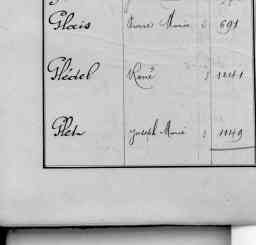 Glais Pierre Marie 691
Glédel René 1241
Glet Joseph Marie 1149